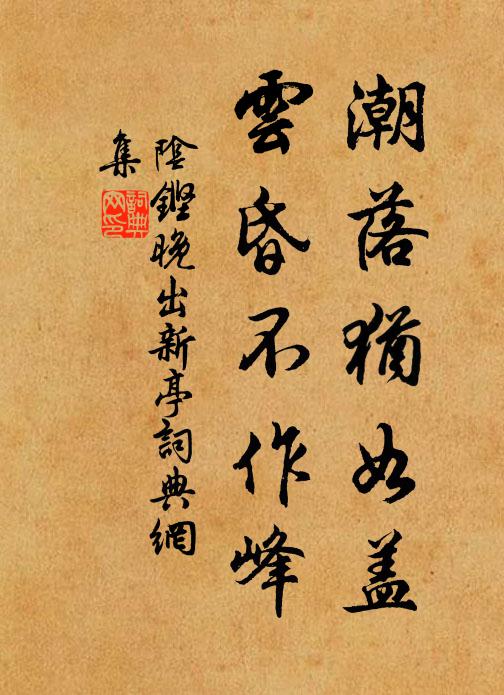 潮落猶如盖
雲昏不作峰
陰鏗晚出新亭詞典網
集
詞典網印